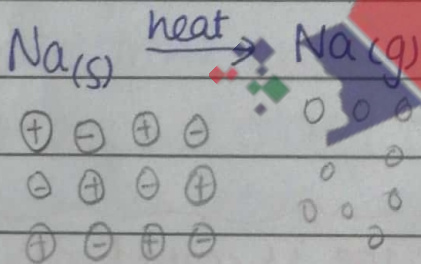 Na(s) heat→ Na(g)
⊕ ⊖ ⊕ ⊖
⊖ ⊕ ⊖ ⊕
⊕ ⊖ ⊕ ⊖